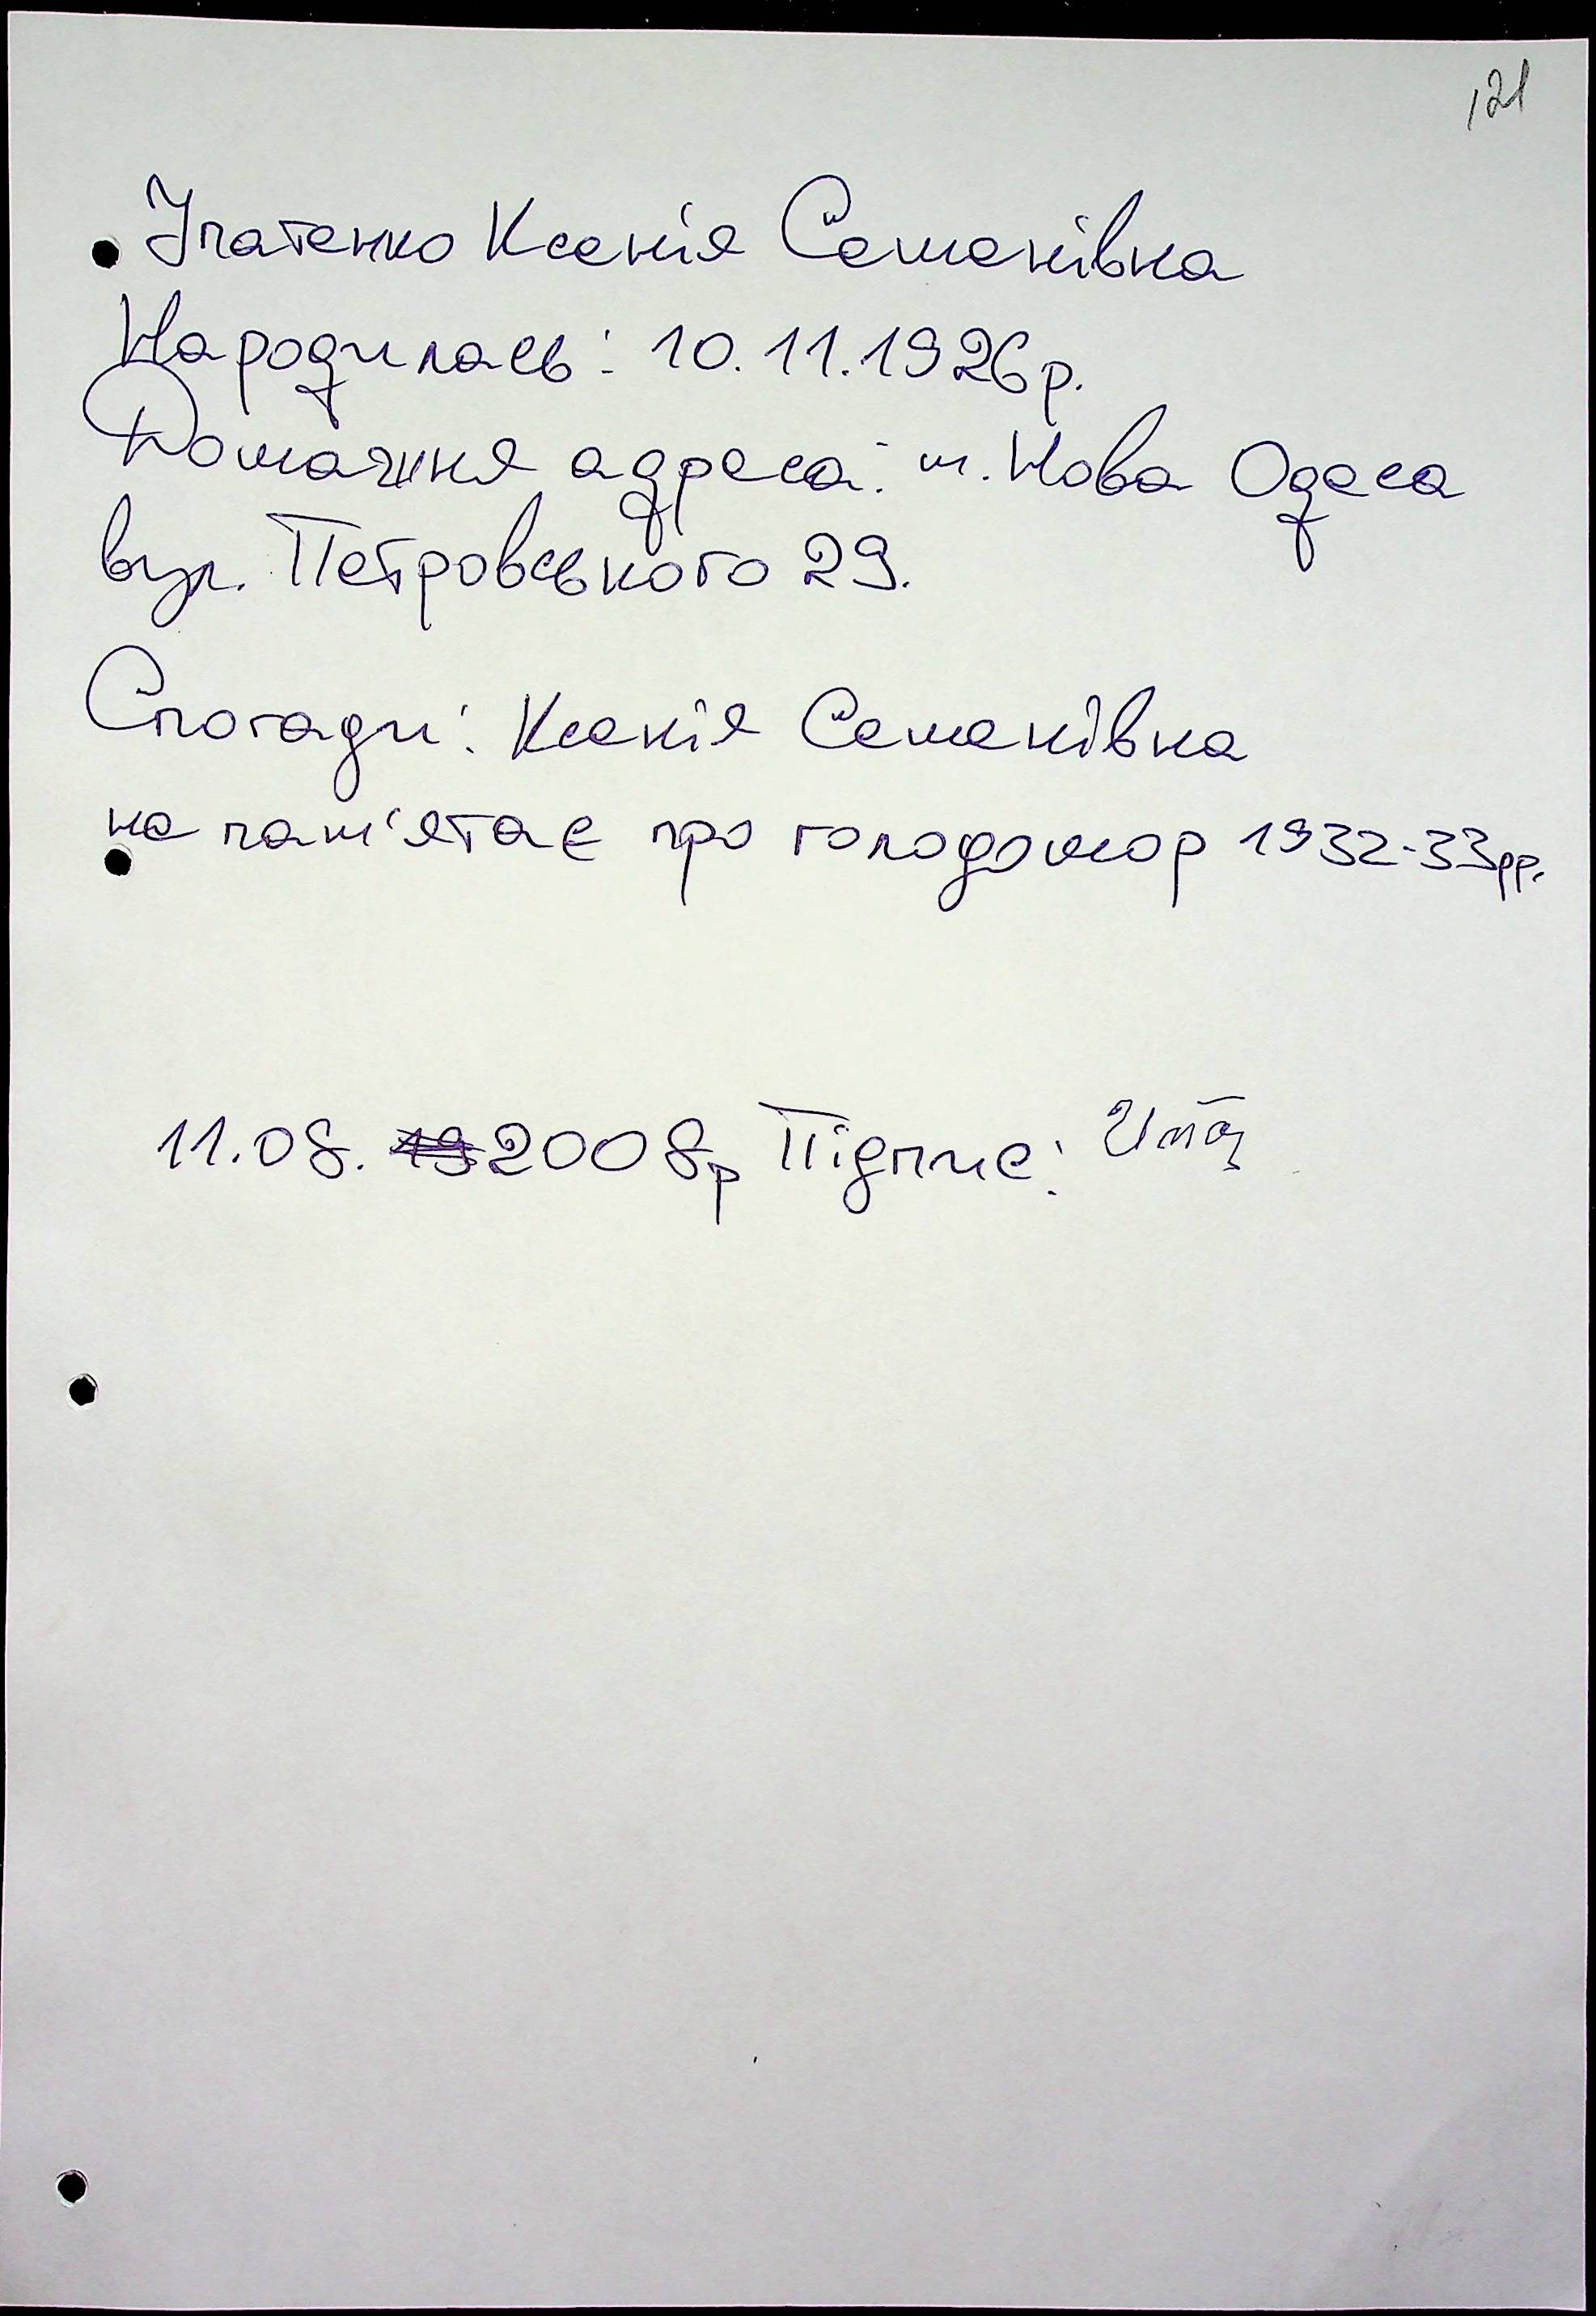 121
Іпатенко Ксенія Семенівна
Народилась: 10.11.1926р.
Домашня адреса: м. Нова Одеса
вул. Петровського 29.
Спогади: Ксенія Семенівна
не пам'ятає про голодомор 1932-33рр.
11.08. 2008р Підпис: